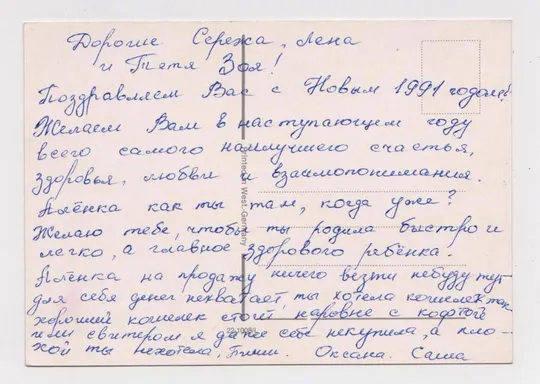 Дорогие Сережа, Лена
и Тетя Зоя!
Поздравляем Вас с Новым 1991 годом!
Желаем Вам в наступающем году
всего самого наилучшего счастья,
здоровья, любви и взаимопонимания.
Алёнка как ты там, когда уже?
Желаю тебе, чтобы ты родила быстро и
легко, а главное здорового ребёнка.
Алёнка на продажу ничего везти небуду тут
для себя денег нехватает, ты хотела кошелек так
хороший кошелек стоит наровне с кофтой
или свитером я даже себе некупила, а пло-
хой ты нехотела, Пиши. Оксана. Саша
Printed in West-Germany